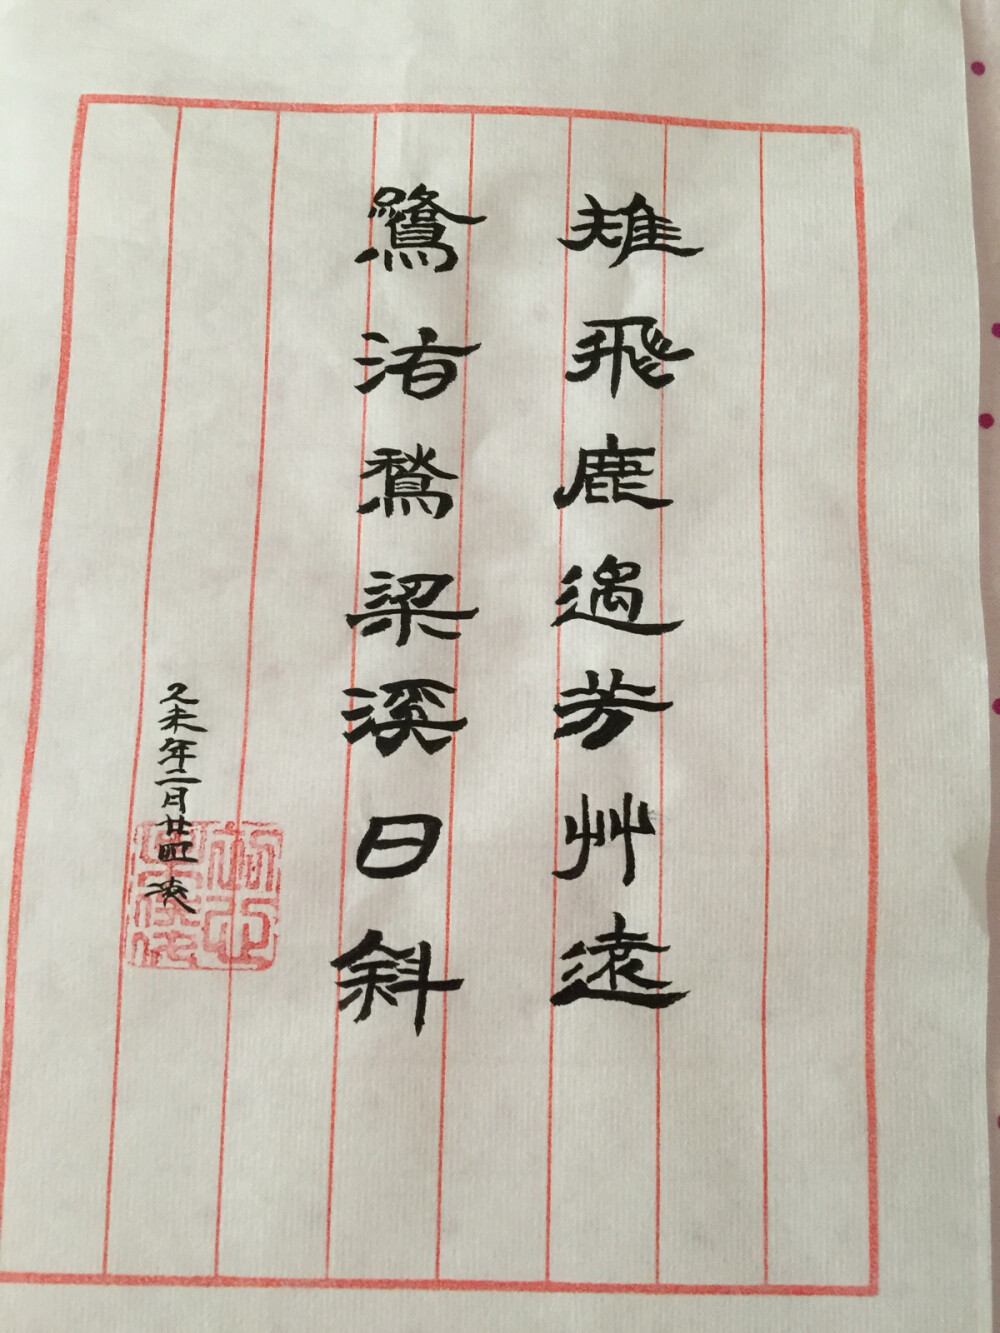 雉飛鹿過芳艸遠
鷺渚鶖梁溪日斜
乙未年二月廿四